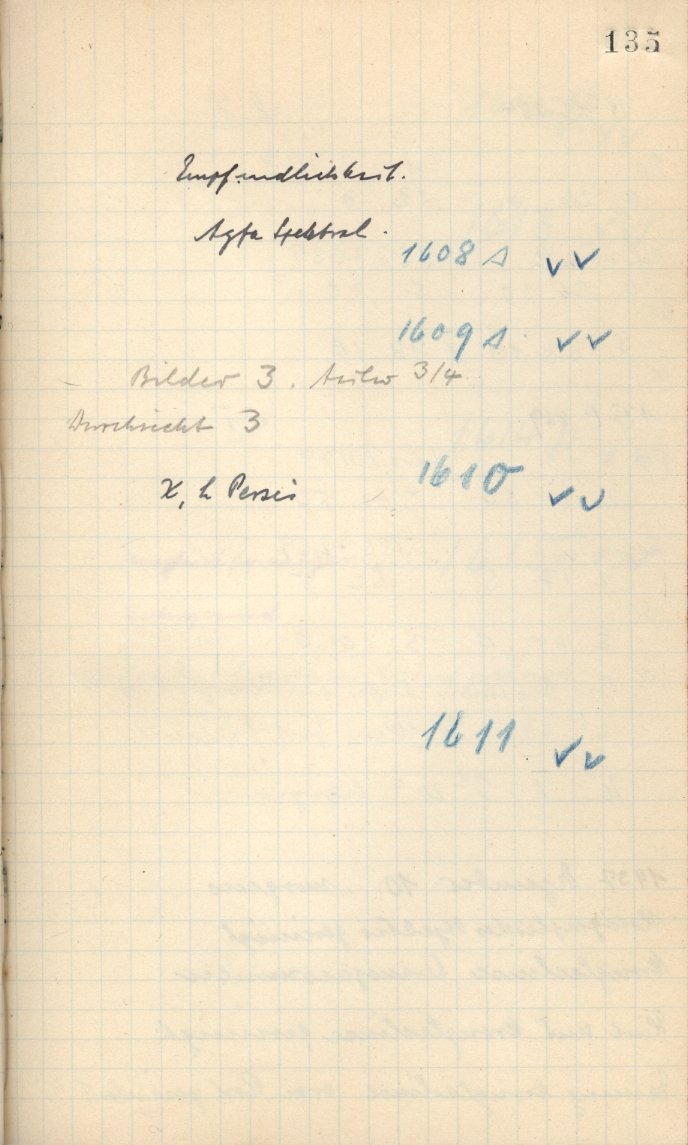 135
Empfindlichkeit.
Agfa Spektral.
1608 A
1609 A
Bilder 3. 3/4
Durchsicht 3
χ, h Persei
1610
1611